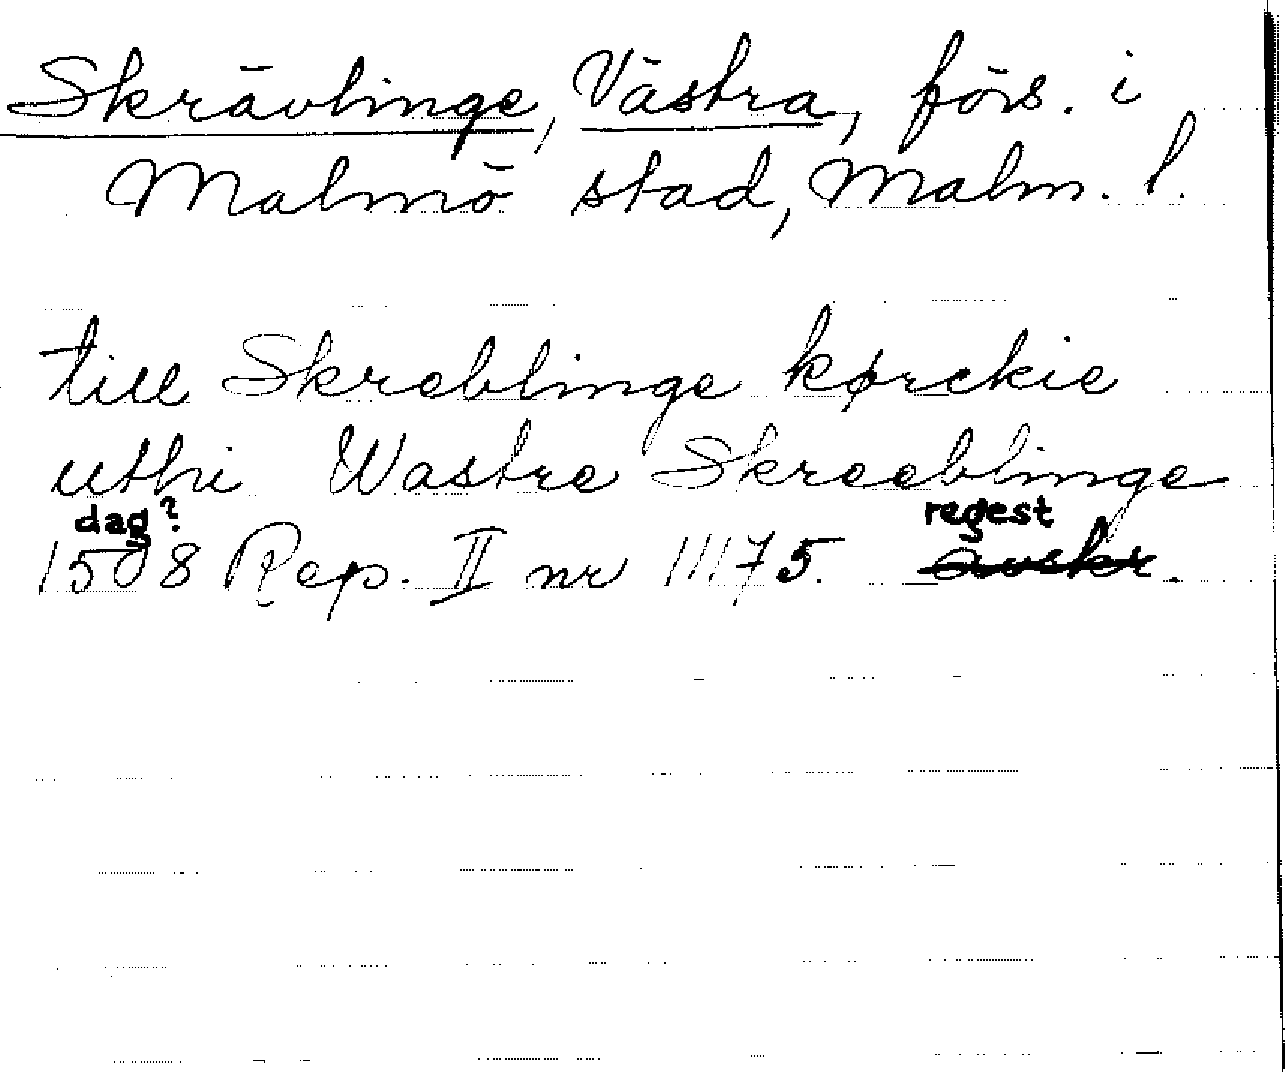 Skrävlinge, Västra, förs. i
Malmö stad, Malm. l.
till Skreblinge kørckie
uthi Wastre Skreeblinge
dag? regest
1508 Rep. II nr 11175. avskr.